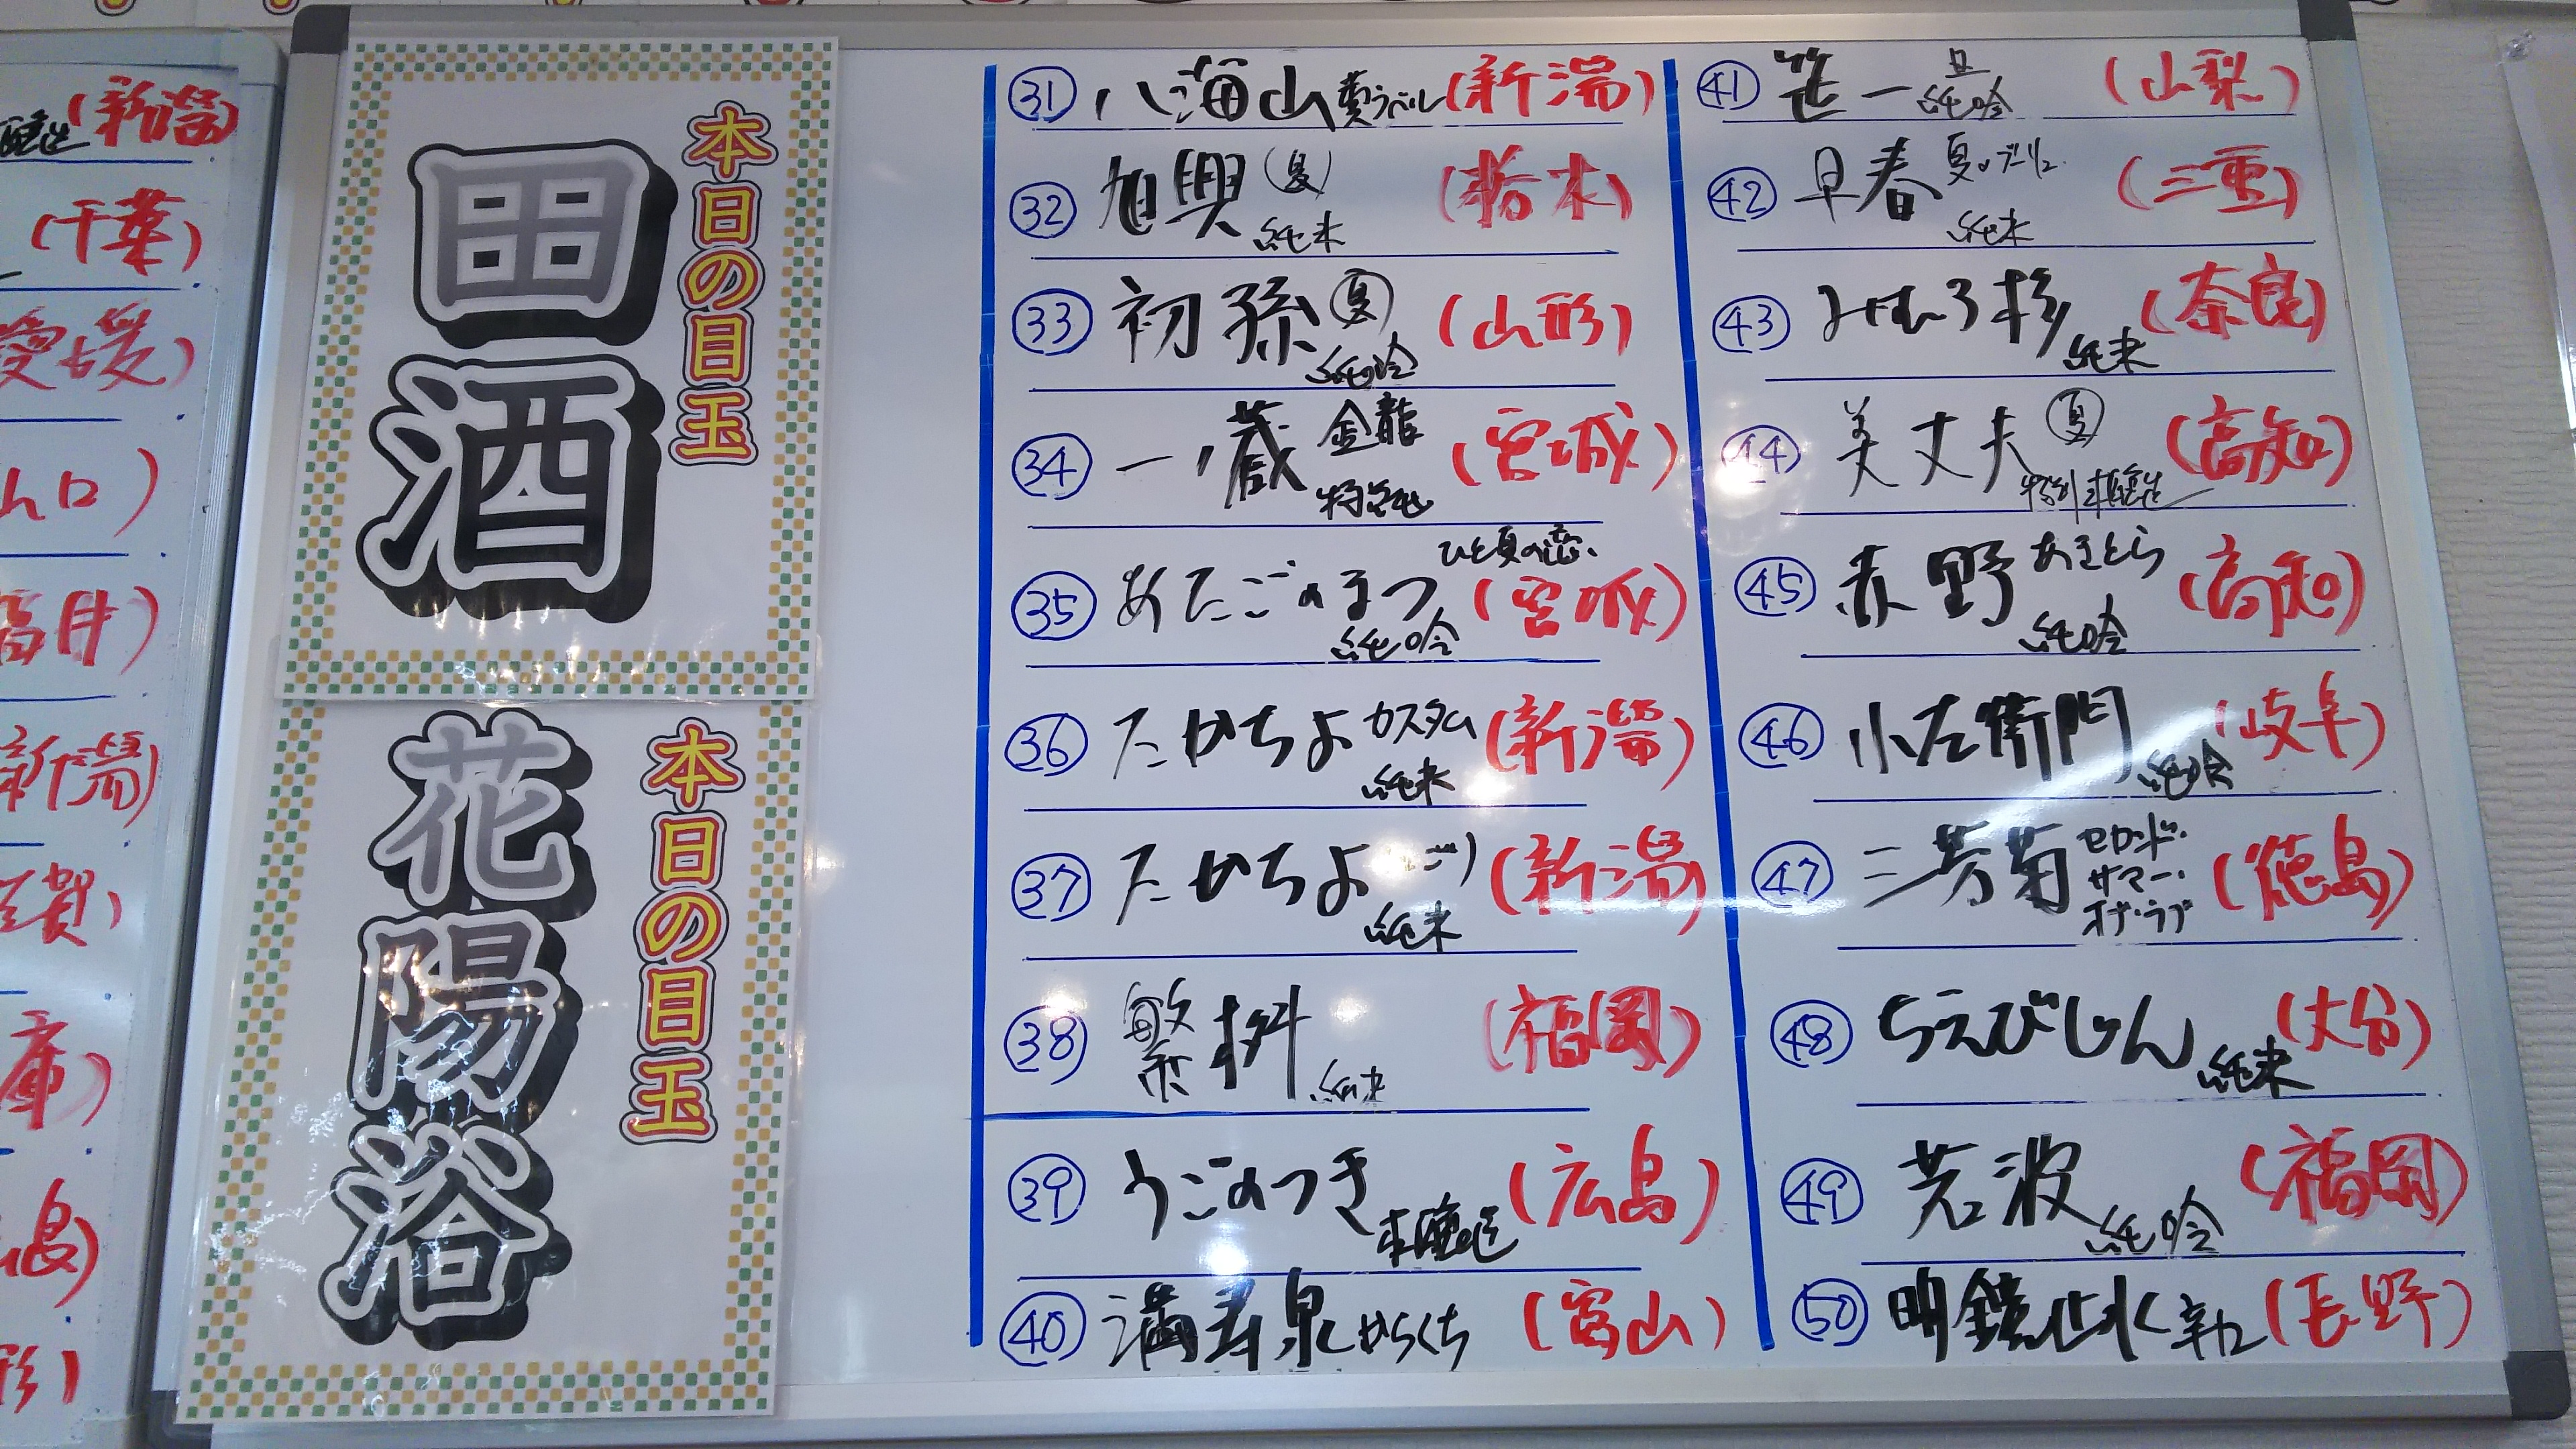 (新潟)
(千葉)
愛媛)
山口)
福井)
新潟)
賀)
庫)
島)
形)
本日の目玉
田酒
本日の目玉
花陽浴
㉛ 八海山 夏ラベル (新潟)
㉜ 旭興 (夏) 純米 (栃木)
㉝ 初孫 夏 純吟 (山形)
㉞ 一ノ蔵 金龍 特純 (宮城)
㉟ あたごのまつ ひと夏の恋 純吟 (宮城)
㊱ たかちよ カスタム 純米 (新潟)
㊲ たかちよ 純米 (新潟)
㊳ 繁桝 純米 (福岡)
㊴ うごのつき 本醸造 (広島)
㊵ 満寿泉 からくち (富山)
㊶ 笹一 旦 純吟 (山梨)
㊷ 早春 夏の 純米 (三重)
㊸ みむろ杉 純米 (奈良)
㊹ 美丈夫 夏 特別本醸造 (高知)
㊺ 赤野 あきとら 純吟 (高知)
㊻ 小左衛門 純吟 (岐阜)
㊼ 三芳菊 セカンド・サマー・オブ・ラブ (徳島)
㊽ ちえびじん 純米 (大分)
㊾ 若波 純吟 (福岡)
㊿ 明鏡止水 辛口 (長野)